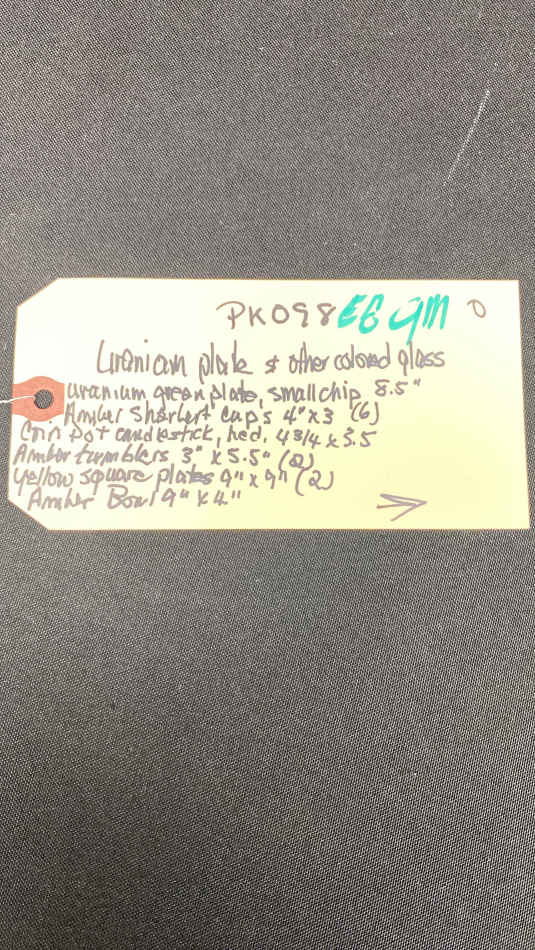 PK098 EG GM
Uranium plate & other colored glass
Uranium green plate, small chip 8.5"
Amber Sherbert cups 4" x 3 (6)
Coin Dot candlestick, red, 4 3/4 x 5.5
Amber tumblers 3" x 5.5" (2)
Yellow square plates 9" x 9" (2)
Amber Bowl 9" x 4"